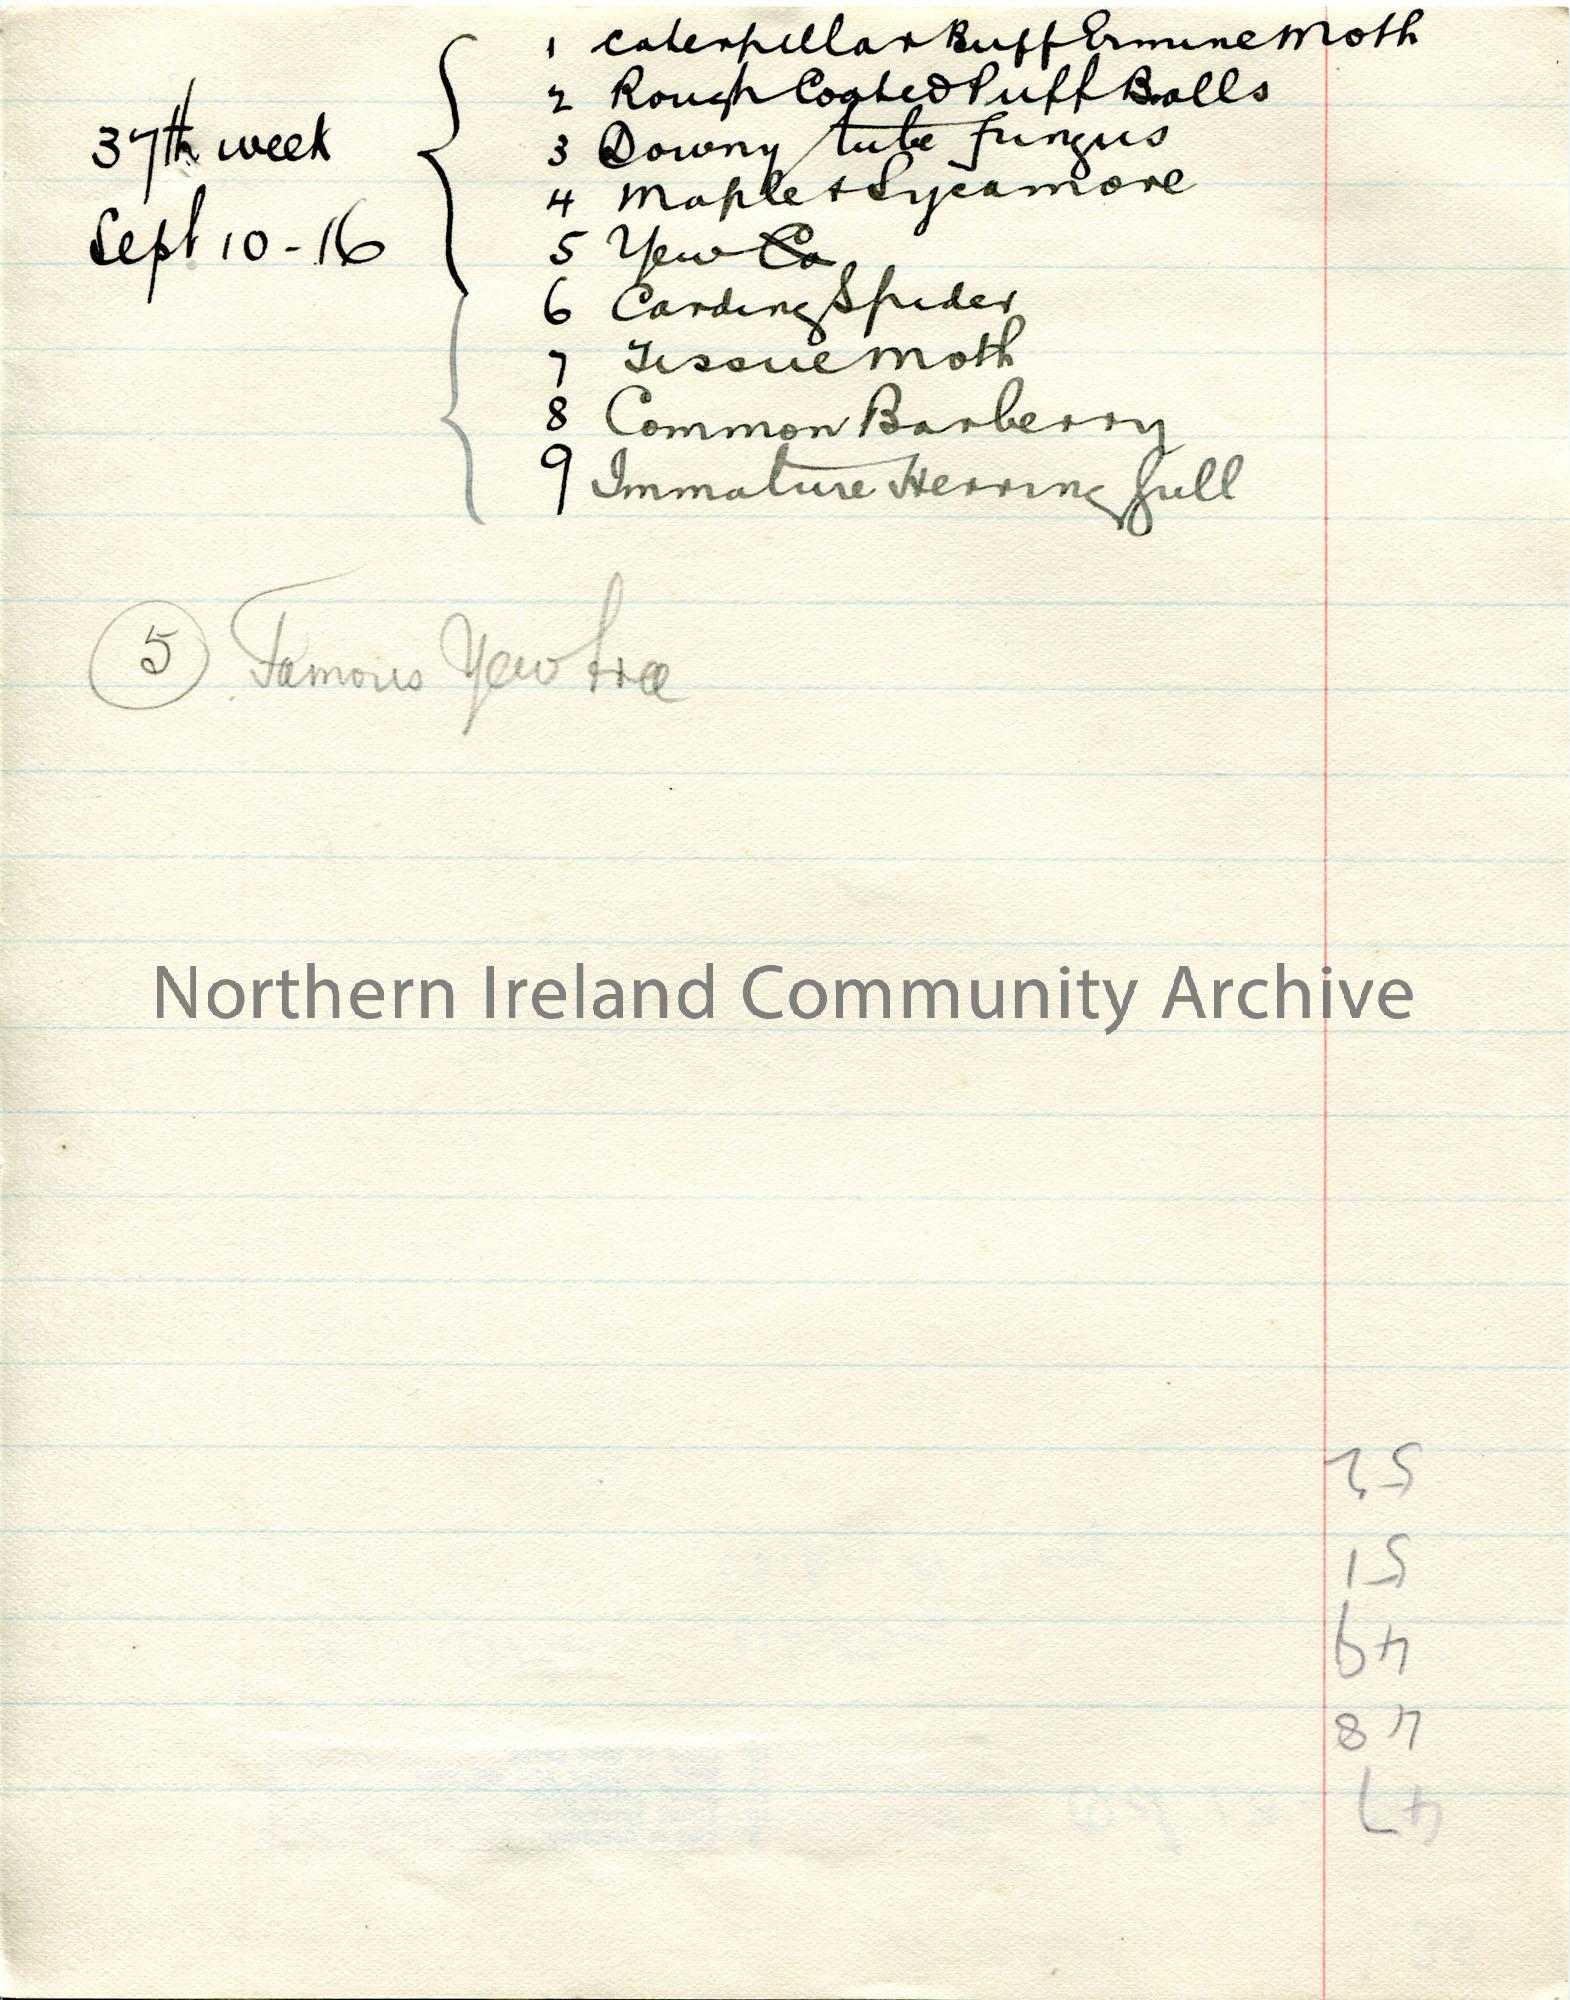 37th week
Sept 10-16
1 Caterpillar Buff Ermine Moth
2 Rough Coated Puff Balls
3 Downy tube fungus
4 Maple + Sycamore
5 Yew Ca
6 Carding Spider
7 Tissue Moth
8 Common Barberry
9 Immature Herring Gull
5 Famous Yew tree
Northern Ireland Community Archive
52
51
49
48
47